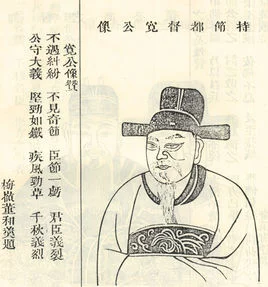 持節都督寬公像
寬公像贊
不遇糾紛 不見奇節 臣節一虧 君臣義裂
公守大義 堅勁如鐵 疾風勁草 千秋義烈
梅嶺董和奠題